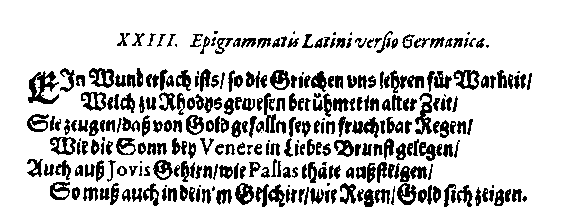 XXIII. Epigrammatis Latini versio Germanica.
EIn Wundersach ists/ so die Griechen vns lehren für Warheit/
Welch zu Rhodys gewesen berühmet in alter Zeit/
Sie zeugen/ daß von Gold gefalln sey ein fruchtbar Regen/
Wie die Sonn bey Venere in Liebes Brunst gelegen/
Auch auß Jovis Gehirn/ wie Pallas thäte außsteigen/
So muß auch in dein'm Geschirr/ wie Regen/ Gold sich zeigen.